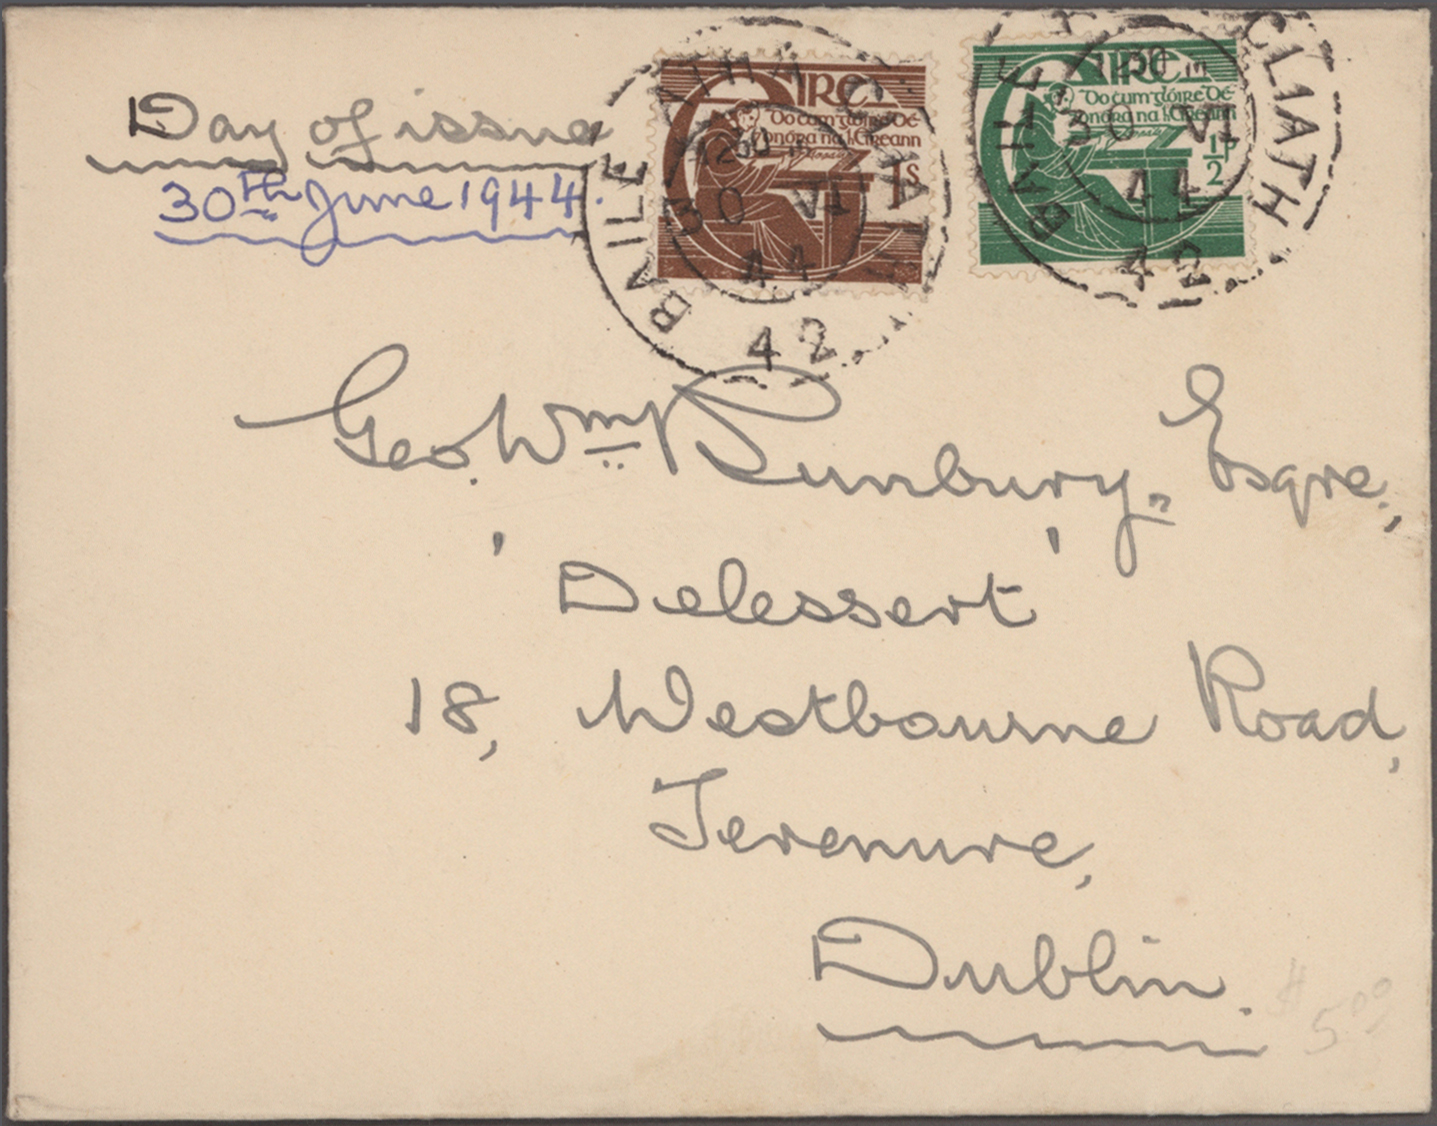 Day of issue
30th June 1944.
ÉIRE
Do cum glóire Dé
agus onóra na hÉireann
1s
ÉIRE
Do cum glóire Dé
agus onóra na hÉireann
1/2 p
BAILE ÁTHA CLIATH
1230
30 VI
44
42
BAILE CLIATH
1230
30 VI
44
42
Geo. Wm. Bunbury, Esqre.,
'Delessert'
18, Westbourne Road,
Terenure,
Dublin.
$5.00